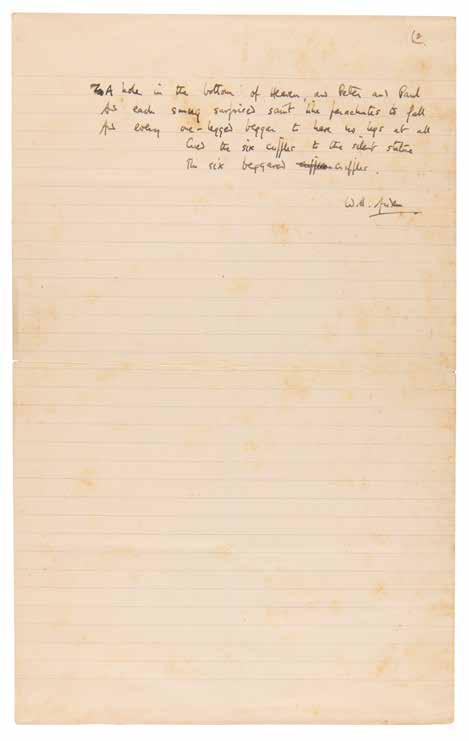 (2.
A hole in the bottom of Heaven, and Peter and Paul
And each smug surprised saint like parachutes to fall
And every one-legged beggar to have no legs at all
Cried the six cripples to the silent statue
The six beggared cripples.
W.H. Auden